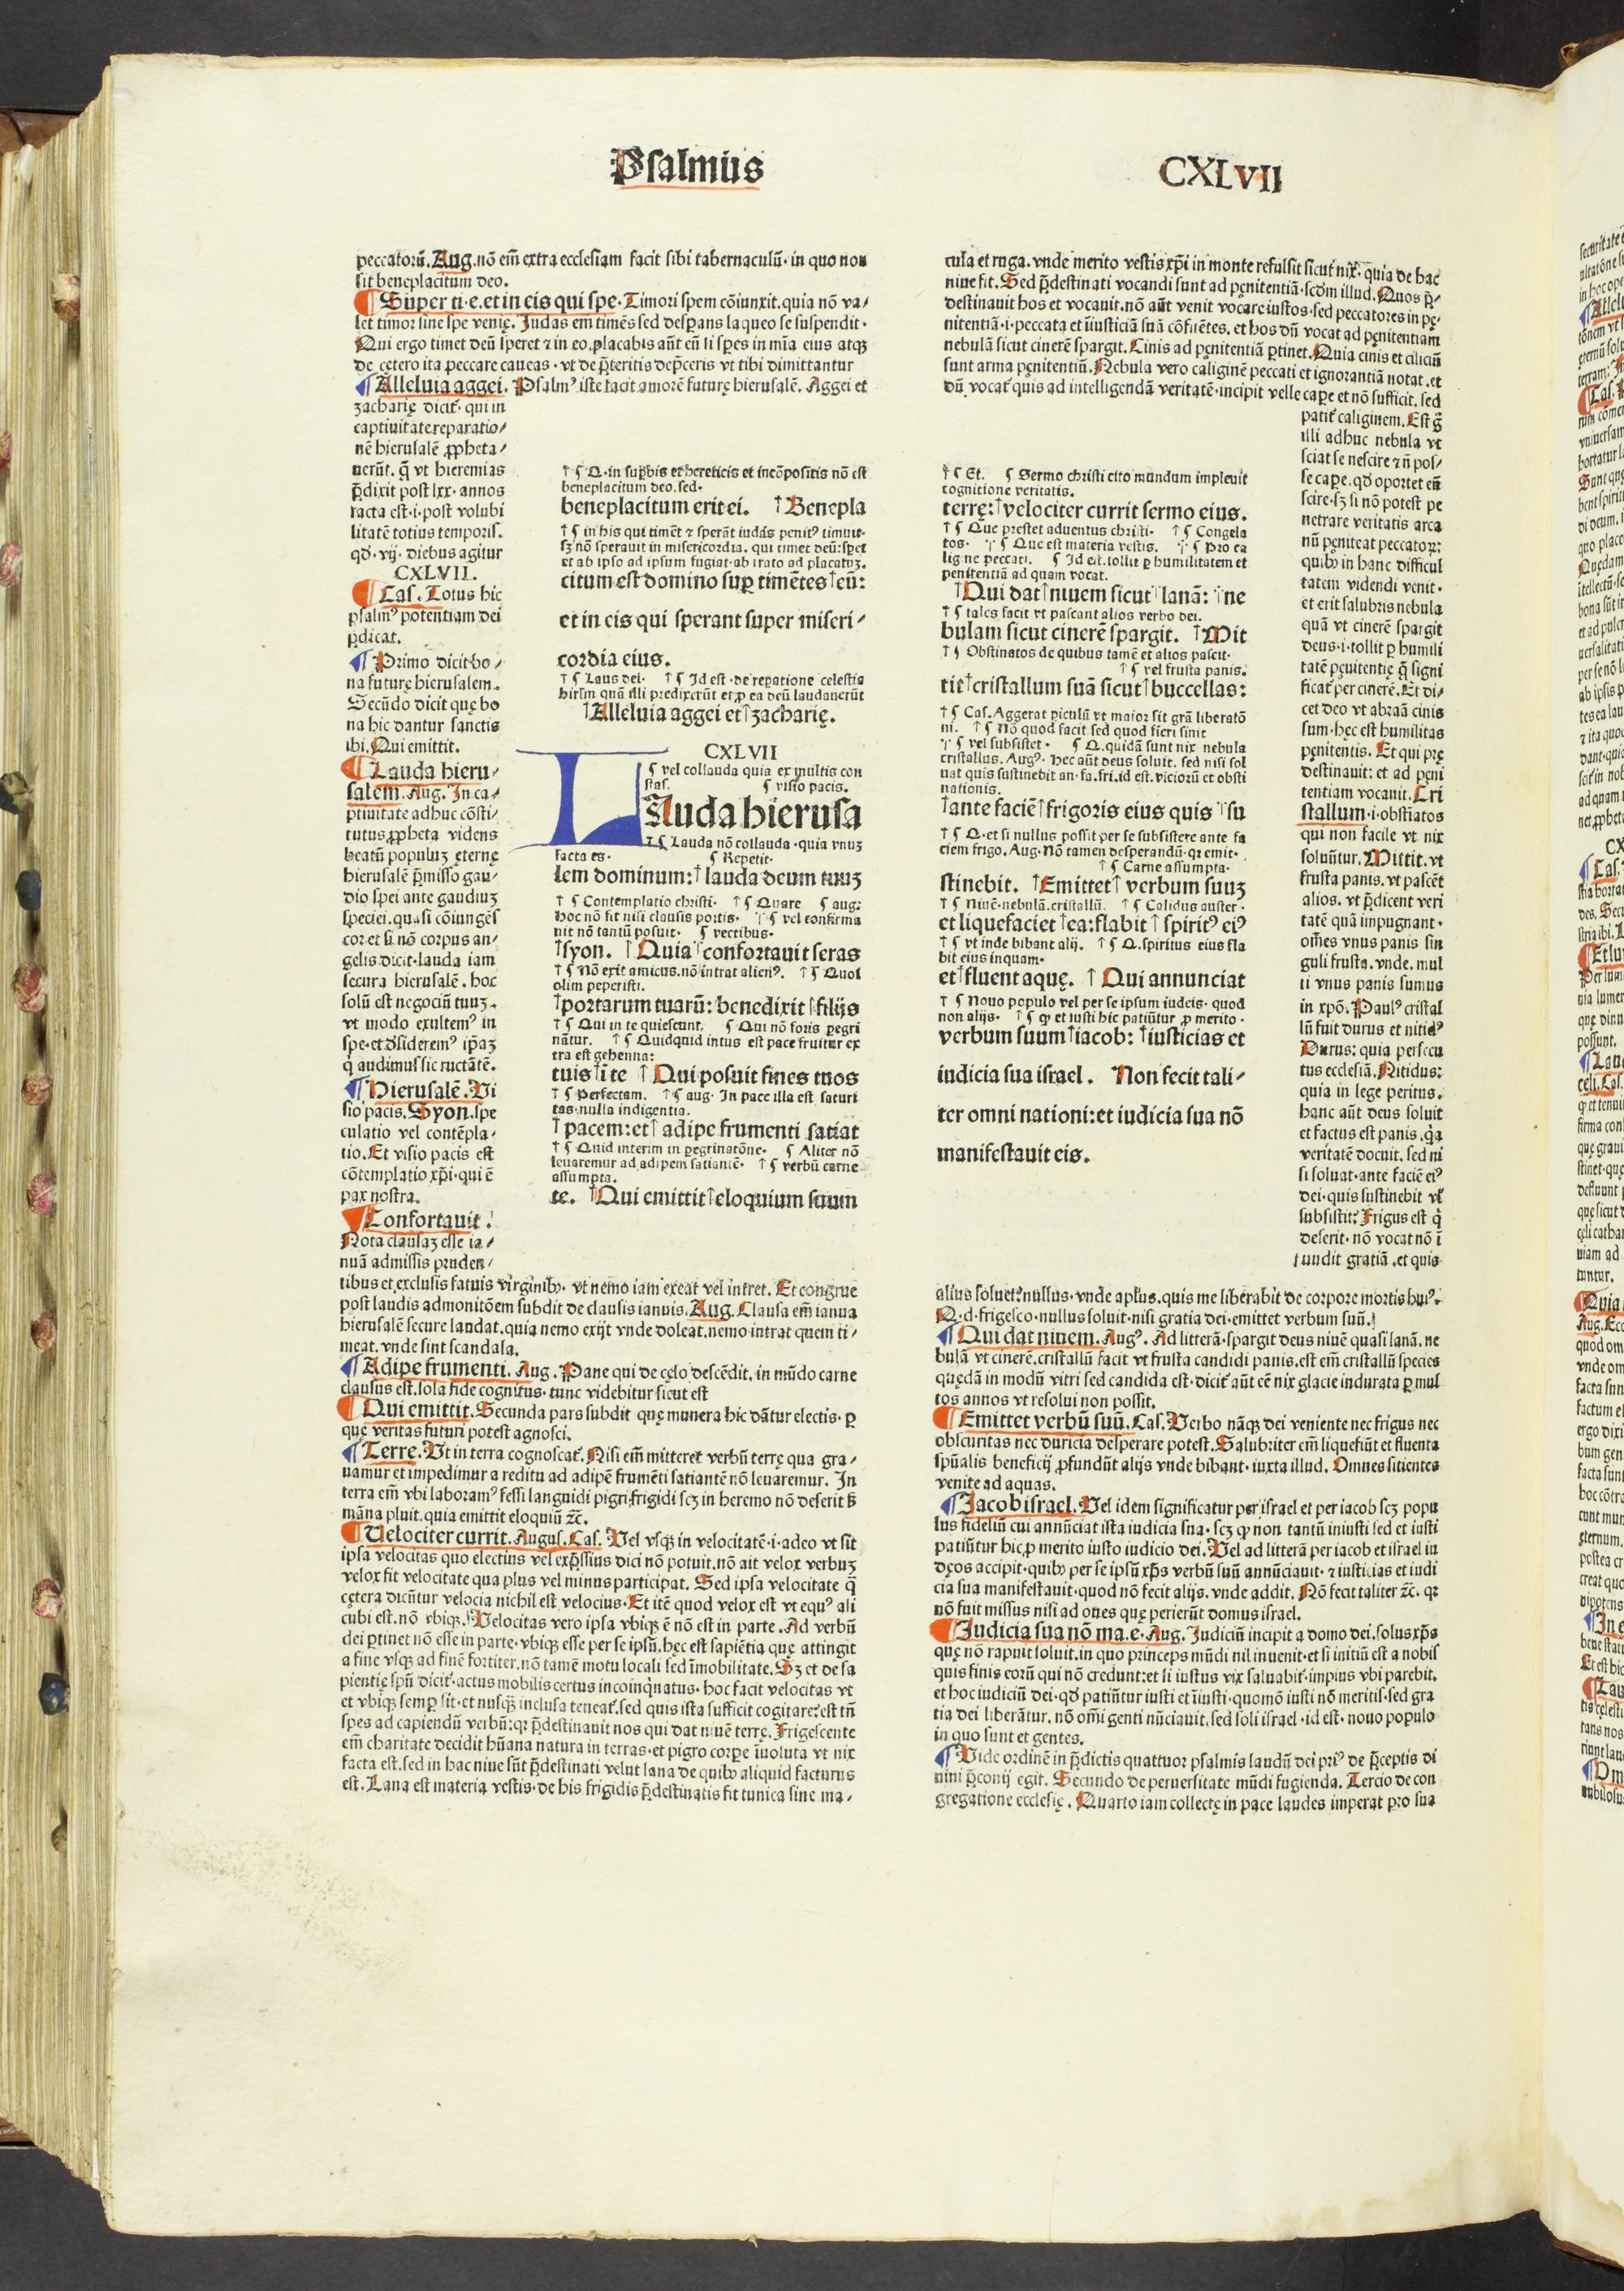 Psalmus
CXLVII
peccatorū. Aug. nō em̄ extra ecclesiam facit sibi tabernaculū· in quo non
sit beneplacitum deo.
¶ Super ti·e·et in eis qui spe· Timori spem cōiunxit. quia nō va/
let timor sine spe venię. Judas em̄ timēs sed desp̱ans laqueo se suspendit·
Qui ergo timet deū speret ⁊ in eo. placabis aūt eū si sp̱es in mīa eius atqꝫ
de cętero ita peccare caueas· vt de p̄teritis dep̄ceris vt tibi dimittantur
¶ Alleluia aggei. Psalmꝰ iste facit amorē futurę hierusalē. Aggei et
zacharię dicit᷑. qui in
captiuitate reparatio/
nē hierusalē ꝓpheta/
uerūt. q̄ vt hieremias
p̄dixit post lxx· annos
facta est·i·post volubi
litatē totius temporis.
qd̄·vij· diebus agitur
CXLVII.
¶ Cas. Totus hic
psalmꝰ potentiam dei
p̱dicat.
¶ Primo dicit bo/
na futurę hierusalem.
Secūdo dicit quę bo
na hic dantur sanctis
ibi. Qui emittit.
¶ Lauda hieru/
salem. Aug. In ca/
ptiuitate adhuc cōsti/
tutus ꝓpheta videns
beatū populuꝫ ęternę
hierusalē p̄misso gau/
dio spei ante gaudiuꝫ
speciei. quasi cōiungēs
cor et si nō corpus an/
gelis dicit· lauda iam
secura hierusalē. hoc
solū est negociū tuuꝫ.
vt modo exultemꝰ in
spe· et dēsideremꝰ ip̄aꝫ
q̇ audimus sic ructātē.
¶ Hierusalē. Vi
sio pacis. Syon. spe
culatio vel contēpla/
tio. Et visio pacis est
cōtemplatio xp̄i· qui ē
pax nostra.
¶ Confortauit.
Nota clausaꝫ esse ia/
nuā admissis pruden/
tibus et exclusis fatuis virginibꝰ· vt nemo iam exeat vel intret. Et congrue
post laudis admonitōem subdit de clausis ianuis. Aug. Clausa em̄ ianua
hierusalē secure laudat. quia nemo exijt vnde doleat. nemo intrat quem ti/
meat. vnde sint scandala.
¶ Adipe frumenti. Aug. Pane qui de cęlo descēdit. in mūdo carne
clausus est. sola fide cognitus· tunc videbitur sicut est
¶ Qui emittit. Secunda pars subdit quę munera hic dātur electis· p̱
quę veritas futuri potest agnosci.
¶ Terrę. Vt in terra cognoscat᷑. Nisi em̄ mitteret verbū terrę qua gra/
uamur et impedimur a reditu ad adipē frumēti satiantē nō leuaremur. In
terra em̄ vbi laboramꝰ fessi languidi pigri frigidi scꝫ in heremo nō deserit ß
māna pluit. quia emittit eloquiū ⁊c̄.
¶ Velociter currit. Augus. Cas. Vel vsqꝫ in velocitatē·i·adeo vt sit
ipsa velocitas quo electius vel exp̄ssius dici nō potuit. nō ait velox verbuꝫ
velox fit velocitate qua plus vel minus participat. Sed ipsa velocitate q̄
cętera dicūtur velocia nichil est velocius· Et itē quod velox est vt equꝰ ali
cubi est. nō vbiqꝫ. Velocitas vero ipsa vbiqꝫ ē nō est in parte. Ad verbū
dei p̱tinet nō esse in parte· vbiqꝫ esse per se ipsū. hęc est sapiētia quę attingit
a fine vsqꝫ ad finē fortiter. nō tamē motu locali sed īmobilitate. Sꝫ et de sa
pientię spū dicit᷑· actus mobilis certus incoinq̇natus· hoc facit velocitas vt
et vbiqꝫ semp̱ sit· et nusqꝫ inclusa teneat᷑. sed quis ista sufficit cogitare: est tn̄
spes ad capiendū verbū: qꝛ p̄destinauit nos qui dat niuē terrę. Frigescente
em̄ charitate decidit hūana natura in terras· et pigro corp̱e īuoluta vt nix
facta est. sed in hac niue sūt p̄destinati velut lana de quibꝰ aliquid facturus
est. Lana est materia vestis· de his frigidis p̄destinatis fit tunica sine ma/
† ¶ Q. in sup̱bis et hereticis et incōpositis nō est
beneplacitum deo. sed·
beneplacitum erit ei. †Benepla
† ¶ in his qui timēt ⁊ sperāt iudas penitꝰ timuit·
sꝫ nō sperauit in misericordia. qui timet deū: spet
et ab ipso ad ipsum fugiat· ab irato ad placatuꝫ.
citum est domino sup̱ timētes†eū:
et in eis qui sperant super miseri/
cordia eius.
† ¶ Laus dei· † ¶ Id est· de repatione celestis
hirl̄m quā illi predixerūt et ꝓ ea deū laudauerūt
†Alleluia aggei et†zacharię.
CXLVII
¶ vel collauda quia ex multis con
stas. ¶ visio pacis.
LAuda hierusa
† ¶ Lauda nō collauda· quia vnuꝫ
facta es· ¶ Repetit·
lem dominum:†lauda deum tuuꝫ
† ¶ Contemplatio christi· † ¶ Quare ¶ aug:
hoc nō fit nisi clausis portis· ¶ vel confirma
uit nō tantū posuit· ¶ vectibus·
†syon. †Quia†confortauit seras
† ¶ Nō exit amicus. nō intrat alienꝰ. † ¶ Quos
olim peperisti.
†portarum tuarū: benedixit†filijs
† ¶ Qui in te quiescunt. ¶ Qui nō foris p̱egri
nātur. † ¶ Quidquid intus est pace fruitur ex
tra est gehenna:
tuis†ī te †Qui posuit fines tuos
† ¶ Perfectam. † ¶ aug· In pace illa est saturi
tas· nulla indigentia.
†pacem: et†adipe frumenti satiat
† ¶ Quid interim in p̱egrinatōne· ¶ Aliter nō
leuaremur ad adipem satiantē· † ¶ verbū carne
assumpta.
te. †Qui emittit†eloquium suum
cula et ruga. vnde merito vestis xp̄i in monte refulsit sicut nix· quia de hac
niue fit. Sed p̄destinati vocandi sunt ad pęnitentiā· scd̄m illud. Quos p̄/
destinauit hos et vocauit. nō aūt venit vocare iustos· sed peccatores in pę/
nitentiā·i·peccata et īiusticiā suā cōfitētes. et hos dn̄s vocat ad pęnitentiam
nebulā sicut cinerē spargit. Cinis ad pęnitentiā p̱tinet. Quia cinis et ciliciū
sunt arma pęnitentiū. Nebula vero caliginē peccati et ignorantiā notat. et
dū vocat᷑ quis ad intelligendā veritatē· incipit velle cap̱e et nō sufficit. sed
patit᷑ caliginem. Est g̊
illi adhuc nebula vt
sciat se nescire ⁊ n̄ pos/
se cap̱e. qd̄ oportet eū
scire· sꝫ si nō potest pe
netrare veritatis arca
nū pęniteat peccator:
quibꝰ in hanc difficul
tatem videndi venit·
et erit salubris nebula
quā vt cinerē spargit
deus·i·tollit p̱ humili
tatē pęnitentię q̄ signi
ficat᷑ per cinerē. Et di/
cet deo vt abraā cinis
sum· hęc est humilitas
pęnitentis. Et qui prę
destinauit: et ad pęni
tentiam vocauit. Cri
stallum·i·obstīatos
qui non facile vt nix
soluūtur. Mittit. vt
frusta panis. vt pascēt
alios. vt p̄dicent veri
tatē quā impugnant·
om̄es vnus panis sin
guli frusta. vnde. mul
ti vnus panis sumus
in xp̄o. Paulꝰ cristal
lū fuit durus et nitidꝰ
Durus: quia persecu
tus ecclesiā. Nitidus:
quia in lege peritus.
hanc aūt deus soluit
et factus est panis. q̇a
veritatē docuit. sed ni
si soluat· ante faciē eiꝰ
dei· quis sustinebit vl̄
subsistit: Frigus est q̇
deserit· nō vocat nō ī
fundit gratiā. et quis
alius soluet: nullus· vnde aplus. quis me liberabit de corpore mortis huiꝰ.
Q.d· frigesco· nullus soluit· nisi gratia dei· emittet verbum suū.
¶ Qui dat niuem. Augꝰ. Ad litterā· spargit deus niuē quasi lanā. ne
bulā vt cinerē. cristallū facit vt frusta candidi panis. est em̄ cristallū species
quędā in modū vitri sed candida est· dicit᷑ aūt eē nix glacie indurata p̱ mul
tos annos vt resolui non possit.
¶ Emittet verbū suū. Cas. Verbo nāqꝫ dei veniente nec frigus nec
obscuritas nec duricia desperare potest. Salubriter em̄ liquefiūt et fluenta
spūalis beneficij ꝓfundūt alijs vnde bibant· iuxta illud. Omnes sitientes
venite ad aquas.
¶ Jacob israel. Vel idem significatur per israel et per iacob scꝫ popu
lus fideliū cui annūciat ista iudicia sua· scꝫ ꝙ non tantū iniusti sed et iusti
patiūtur hic ꝓ merito iusto iudicio dei. Vel ad litterā per iacob et israel iu
dęos accipit· quibꝰ per se ipsū xp̄s verbū suū annūciauit· ⁊ iusticias et iudi
cia sua manifestauit· quod nō fecit alijs. vnde addit. Nō fecit taliter ⁊c̄. qꝛ
nō fuit missus nisi ad oues quę perierūt domus israel.
¶ Judicia sua nō ma.e· Aug. Judiciū incipit a domo dei. solus xp̄s
quę nō rapuit soluit. in quo princeps mūdi nil inuenit· et si initiū est a nobis
quis finis eorū qui nō credunt: et si iustus vix saluabit᷑· impius vbi parebit.
et hoc iudiciū dei· qd̄ patiūtur iusti et īiusti· quomō iusti nō meritis· sed gra
tia dei liberātur. nō om̄i genti nūciauit. sed soli israel· id est· nouo populo
in quo sunt et gentes.
¶ Vide ordinē in p̄dictis quattuor psalmis laudū dei priꝰ de p̄ceptis di
uini p̄conij egit. Secundo de peruersitate mūdi fugienda. Tercio de con
gregatione ecclesię. Quarto iam collectę in pace laudes imperat pro sua
† ¶ Et. ¶ Sermo christi cito mundum impleuit
cognitione veritatis.
terrę:†velociter currit sermo eius.
† ¶ Que prestet aduentus christi· † ¶ Congela
tos· ¶ Que est materia vestis. ¶ Pro ca
ligine peccati. ¶ Id est. tollit p̱ humilitatem et
penitentiā ad quam vocat.
†Qui dat†niuem sicut†lanā: †ne
† ¶ tales facit vt pascant alios verbo dei.
bulam sicut cinerē spargit. †Mit
† ¶ Obstinatos de quibus tamē et alios pascit·
† ¶ vel frusta panis.
tit†cristallum suā sicut†buccellas:
† ¶ Cas. Aggerat p̱iculū vt maior sit grā liberatō
ni. † ¶ Nō quod facit sed quod fieri sinit
¶ vel subsistet· ¶ Q. quidā sunt nix nebula
cristallus. Augꝰ· hec aūt deus soluit. sed nisi sol
uat quis sustinebit an· fa. fri. id est. viciorū et obsti
nationis.
†ante faciē†frigoris eius quis†su
† ¶ Q. et si nullus possit per se subsistere ante fa
ciem frigo. Aug· Nō tamen desperandū· qꝛ emit·
† ¶ Carne assumpta·
stinebit. †Emittet†verbum suuꝫ
† ¶ Niuē· nebulā. cristallū. † ¶ Calidus auster·
et liquefaciet†ea: flabit†spiritꝰ eiꝰ
† ¶ vt inde bibant alij. † ¶ Q. spiritus eius fla
bit eius inquam·
et†fluent aquę. †Qui annunciat
† ¶ Nouo populo vel per se ipsum iudeis· quod
non alijs· † ¶ ꝙ et iusti hic patiūtur ꝓ merito·
verbum suum†iacob: †iusticias et
iudicia sua israel. Non fecit tali/
ter omni nationi: et iudicia sua nō
manifestauit eis.